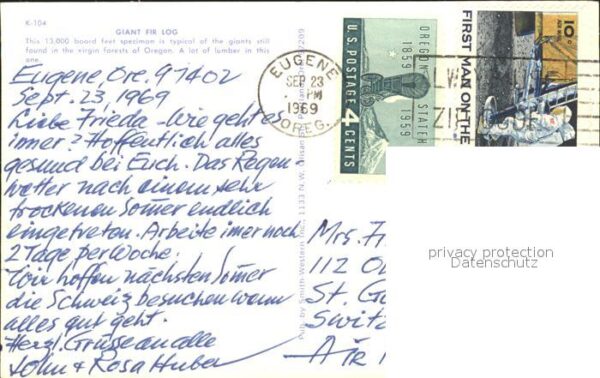 K-104
GIANT FIR LOG
This 13,000 board feet speciman is typical of the giants still
found in the virgin forests of Oregon. A lot of lumber in this
one.
Eugene, Ore. 97402
Sept. 23, 1969
Liebe Frieda - Wie geht es
immer? Hoffentlich alles
gesund bei Euch. Das Regen-
wetter nach einem sehr
trockenen Somer endlich
eingetreten. Arbeite imer noch
2 Tage per Woche.
Wir hoffen nächsten Somer
die Schweiz besuchen wenn
alles gut geht.
Herzl. Grüsse an alle
John & Rosa Huber
Pub. by Smith-Western Inc., 1133 N.W. Glisan
EUGENE
SEP 23
PM
1969
OREG.
U.S. POSTAGE 4 CENTS
OREGON STATEHOOD
1859 1959
FIRST MAN ON THE
10c
ZIP CODE
Mrs. Fr
112
St. Ga
Switz
Air
privacy protection
Datenschutz